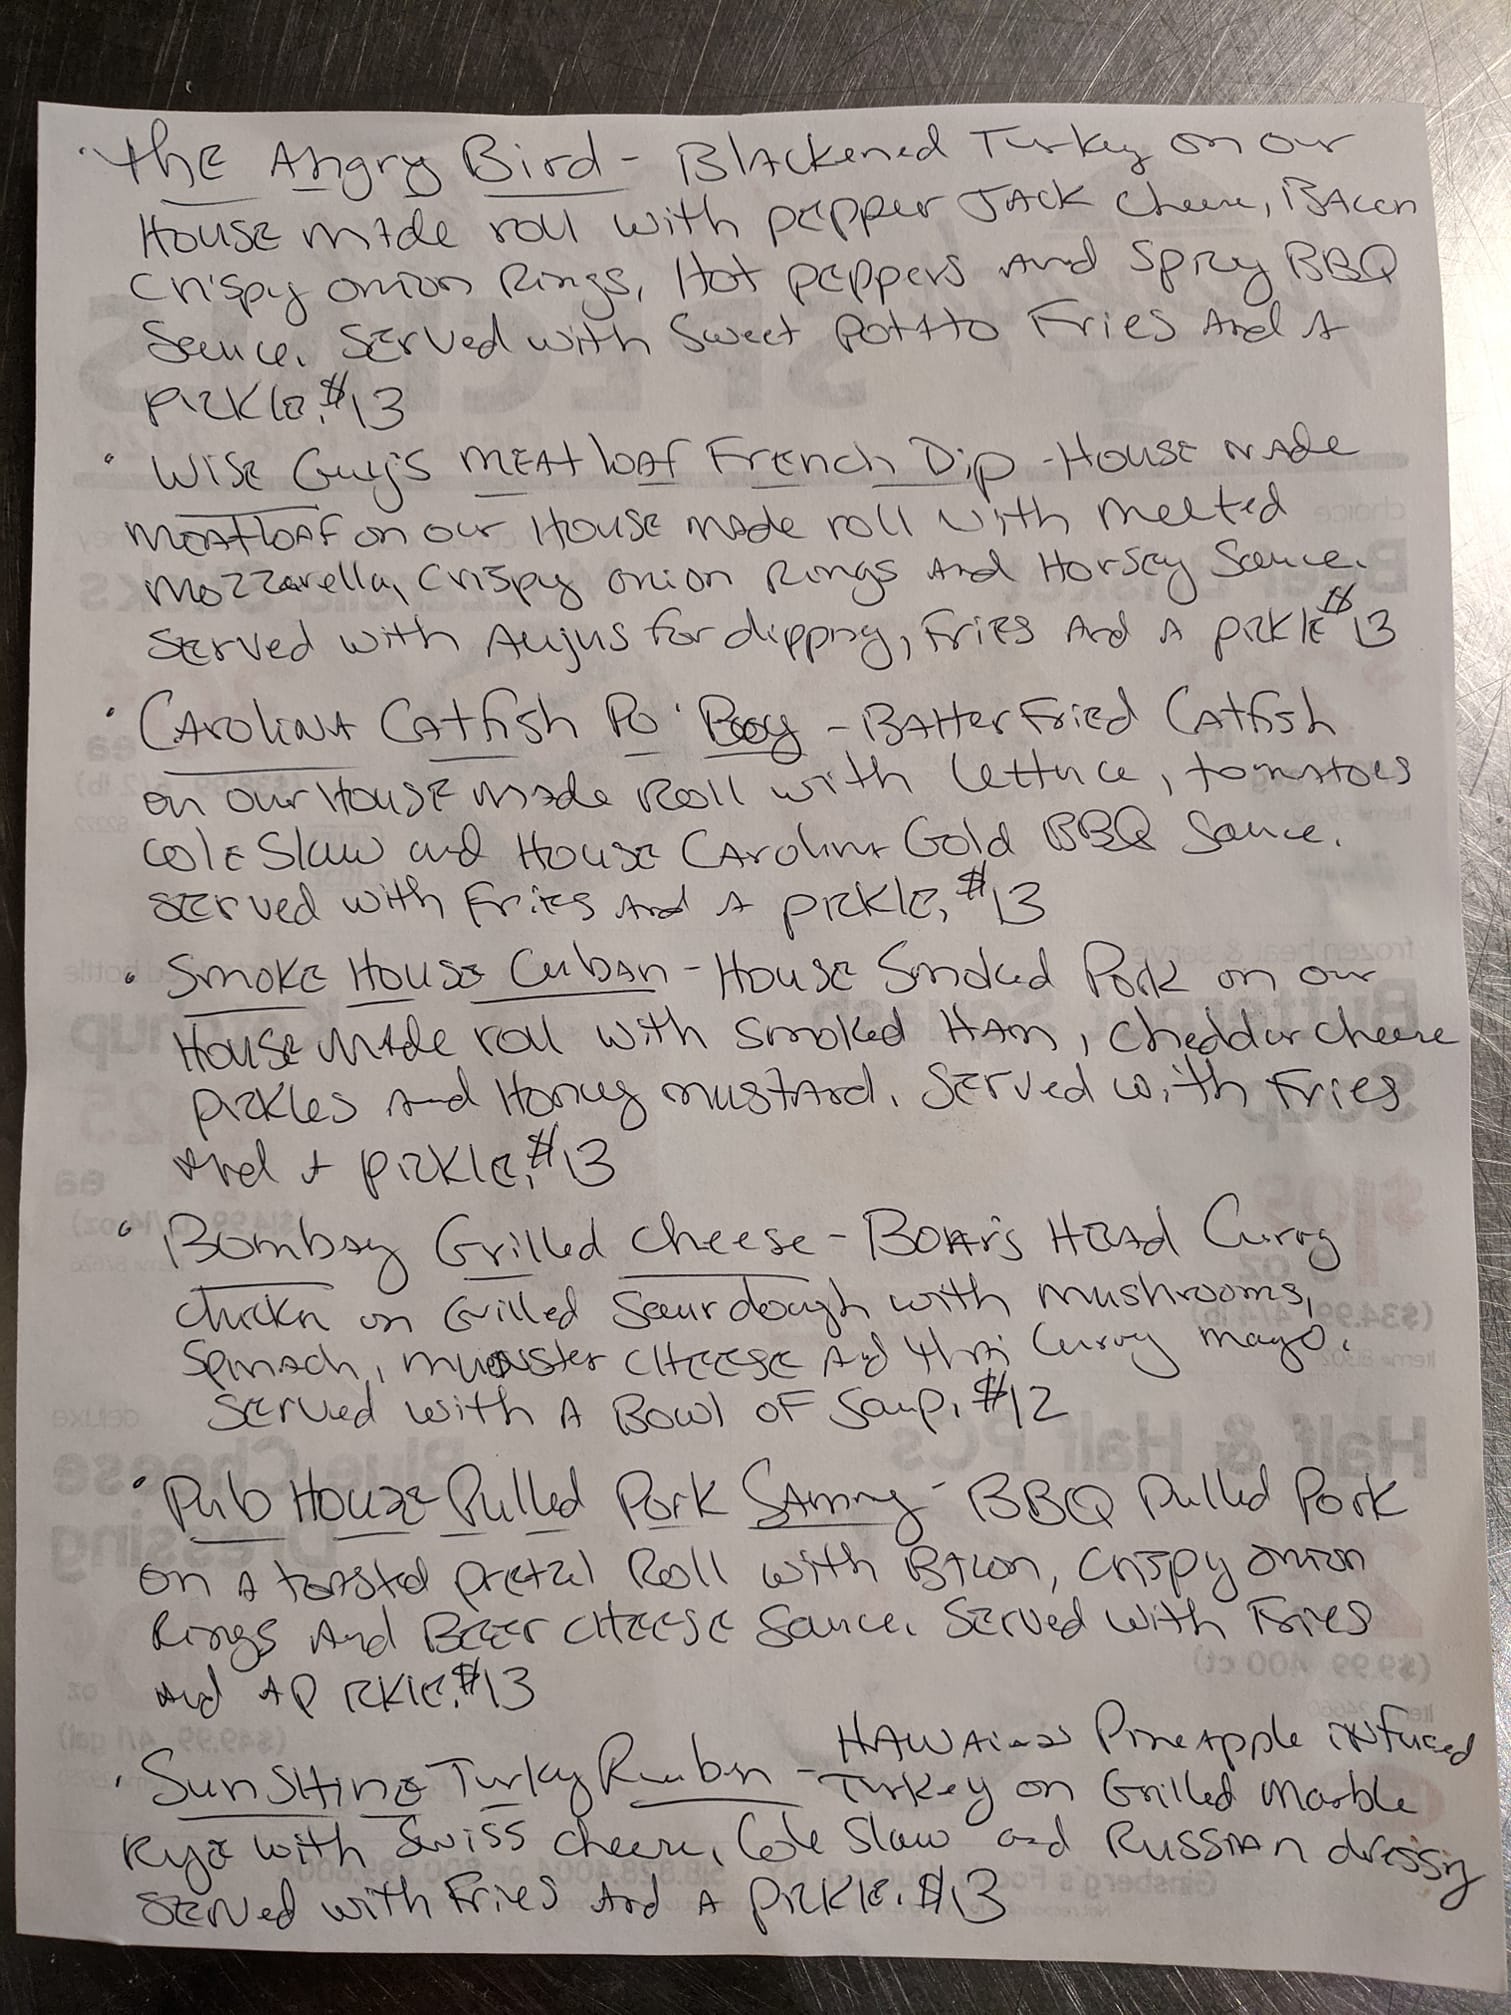 · The Angry Bird - Blackened Turkey on our
House made roll with pepper Jack cheese, Bacon
crispy onion Rings, Hot peppers and spicy BBQ
Sauce. Served with Sweet potato Fries and A
pickle. $13
· Wise Guy's Meatloaf French Dip - House Made
meatloaf on our House made roll with melted
mozzarella, crispy onion Rings and Horsey Sauce.
Served with Aujus for dipping, Fries And A pickle $13
· Carolina Catfish Po' Boy - Batter Fried Catfish
on our House made Roll with lettuce, tomatoes
Cole Slaw and House Carolina Gold BBQ Sauce.
Served with Fries And A pickle, $13
· Smoke House Cuban - House Smoked Pork on our
House Made roll with smoked Ham, cheddar cheese
pickles and Honey mustard. Served with Fries
And A pickle, $13
· Bombay Grilled cheese - Boar's Head Curry
chicken on Grilled Sourdough with mushrooms,
Spinach, muenster cheese and thai Curry mayo.
Served with A Bowl of Soup. $12
· Pub House Pulled Pork Sammy - BBQ Pulled Pork
on A toasted pretzel Roll with Bacon, Crispy onion
Rings And Beer cheese Sauce. Served with Fries
And A Pickle. $13
· Sunshine Turky Reuben - Hawaiian Pineapple infused
Turkey on Grilled Marble
Rye with Swiss cheese, Cole Slaw and Russian dressing
Served with Fries And A pickle. $13